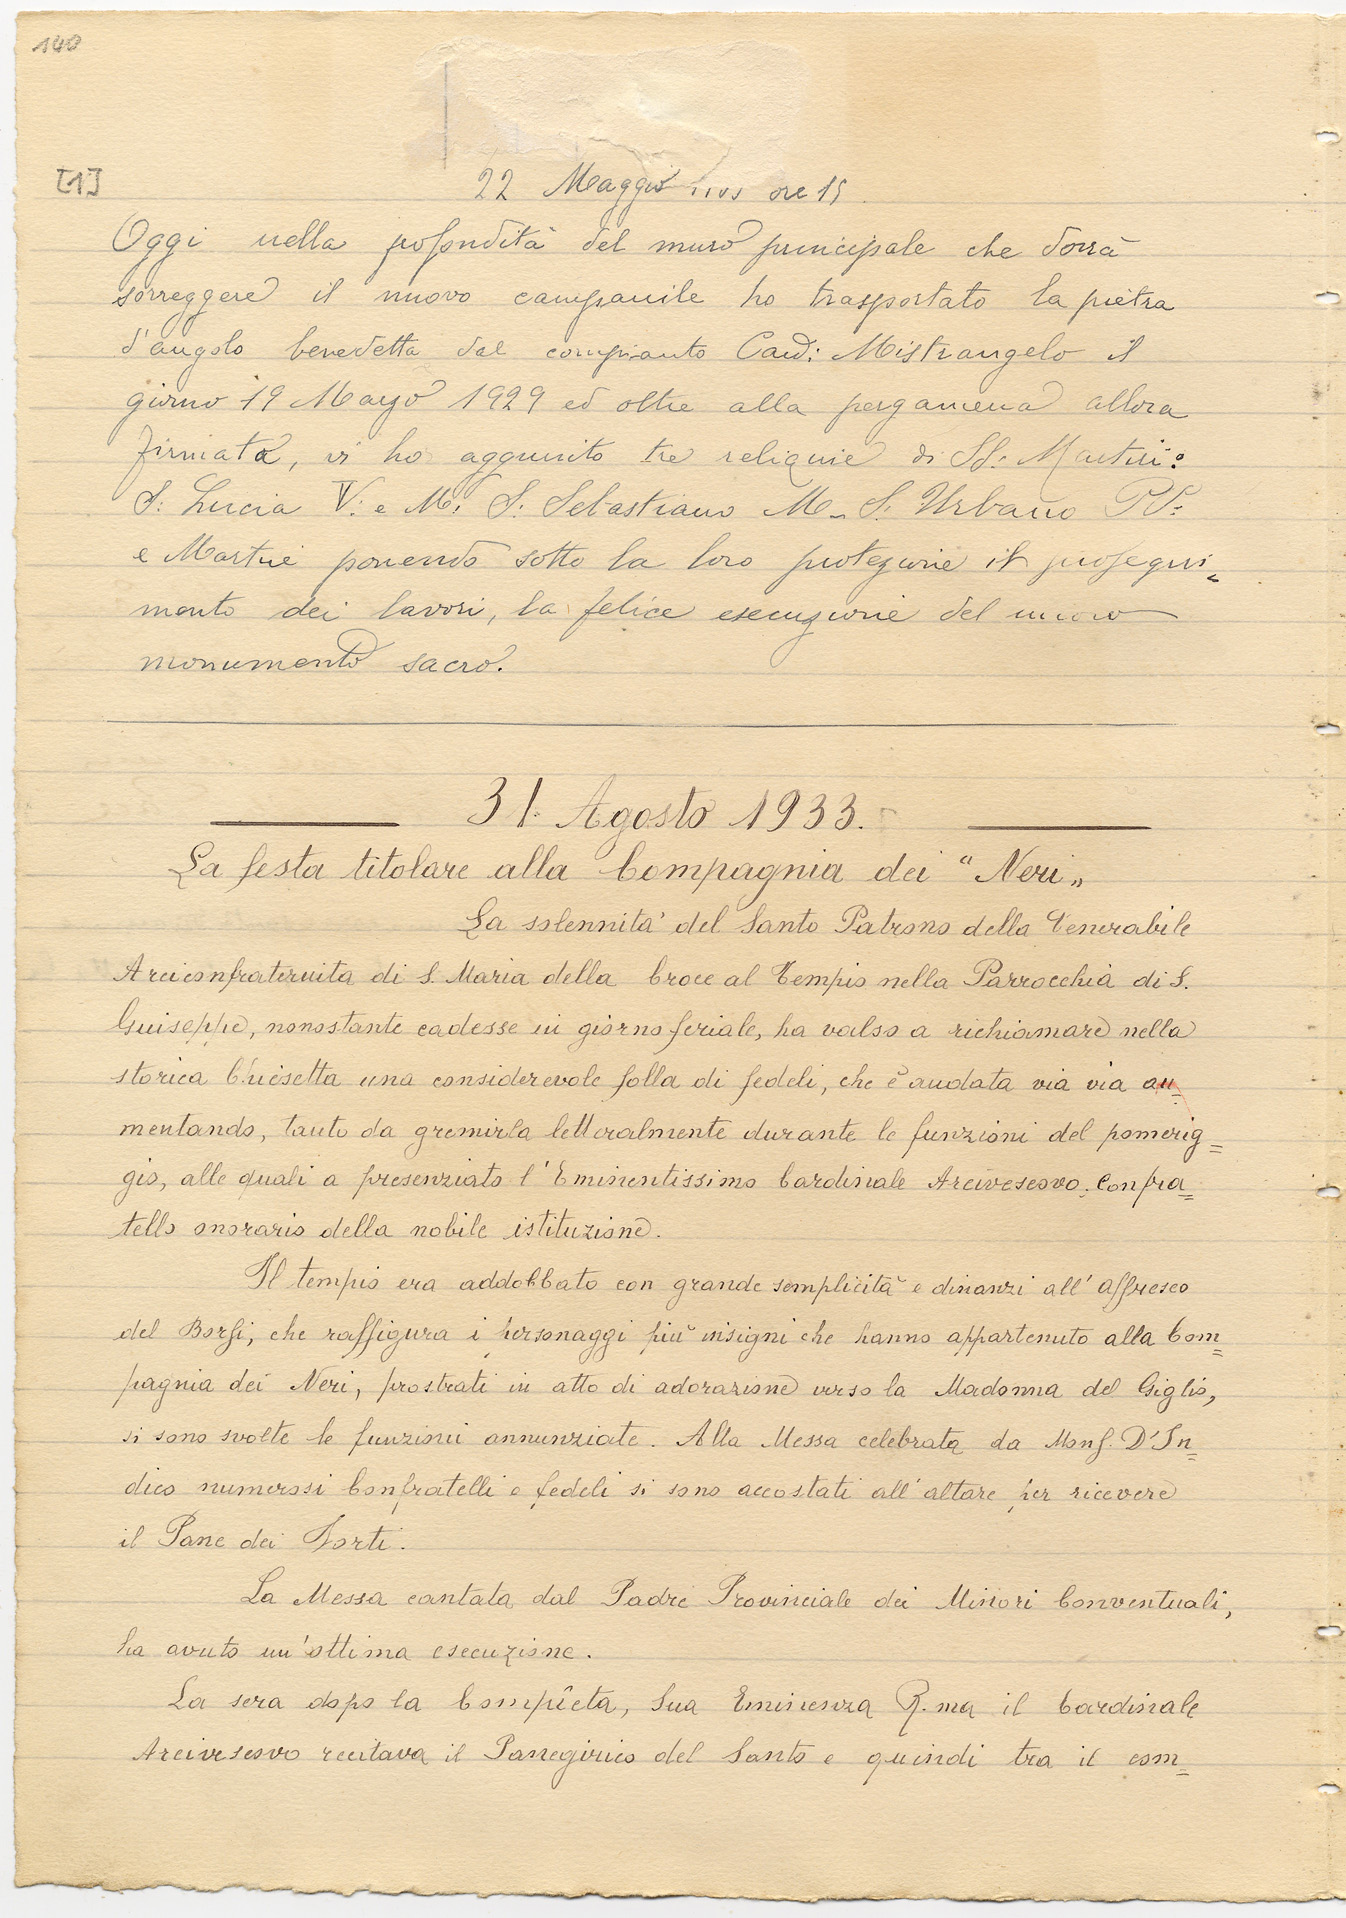 140
[1]
22 Maggio ore 15
Oggi nella profondità del muro principale che dovrà
sorreggere il nuovo campanile ho trasportato la pietra
d'angolo benedetta dal compianto Card: Mistrangelo il
giorno 19 Maggio 1929 ed oltre alla pergamena allora
firmata, vi ho aggiunto tre reliquie di SS. Martiri:
S. Lucia V: e M: S: Sebastiano M_ S. Urbano PP.
e Martire ponendo sotto la loro protezione il prosegui-
mento dei lavori, la felice esecuzione del nuovo
monumento sacro.
31. Agosto 1933.
La festa titolare alla Compagnia dei "Neri"
La solennita' del Santo Patrono della Venerabile
Arciconfraternita di S. Maria della Croce al Tempio nella Parrocchia di S.
Guiseppe, nonostante cadesse in giorno feriale, ha valso a richiamare nella
storica Chiesetta una considerevole folla di fedeli, che è andata via via au=
mentando, tanto da gremirla letteralmente durante le funzioni del pomerig=
gio, alle quali a presenziato l'Eminentissimo Cardinale Arcivescovo. Confra=
tello onorario della nobile istituzione.
Il tempio era addobbato con grande semplicità e dinanzi all'affresco
del Borsi, che raffigura i personaggi più insigni che hanno appartenuto alla Com=
pagnia dei Neri, prostrati in atto di adorazione verso la Madonna del Giglio,
si sono svolte le funzioni annunziate. Alla Messa celebrata da Mons. D'In=
dico numerosi Confratelli e fedeli si sono accostati all'altare per ricevere
il Pane dei Forti.
La Messa cantata dal Padre Provinciale dei Minori Conventuali,
ha avuto un'ottima esecuzione.
La sera dopo la Compieta, Sua Eminenza R.ma il Cardinale
Arcivescovo recitava il Panegirico del Santo e quindi tra il com=